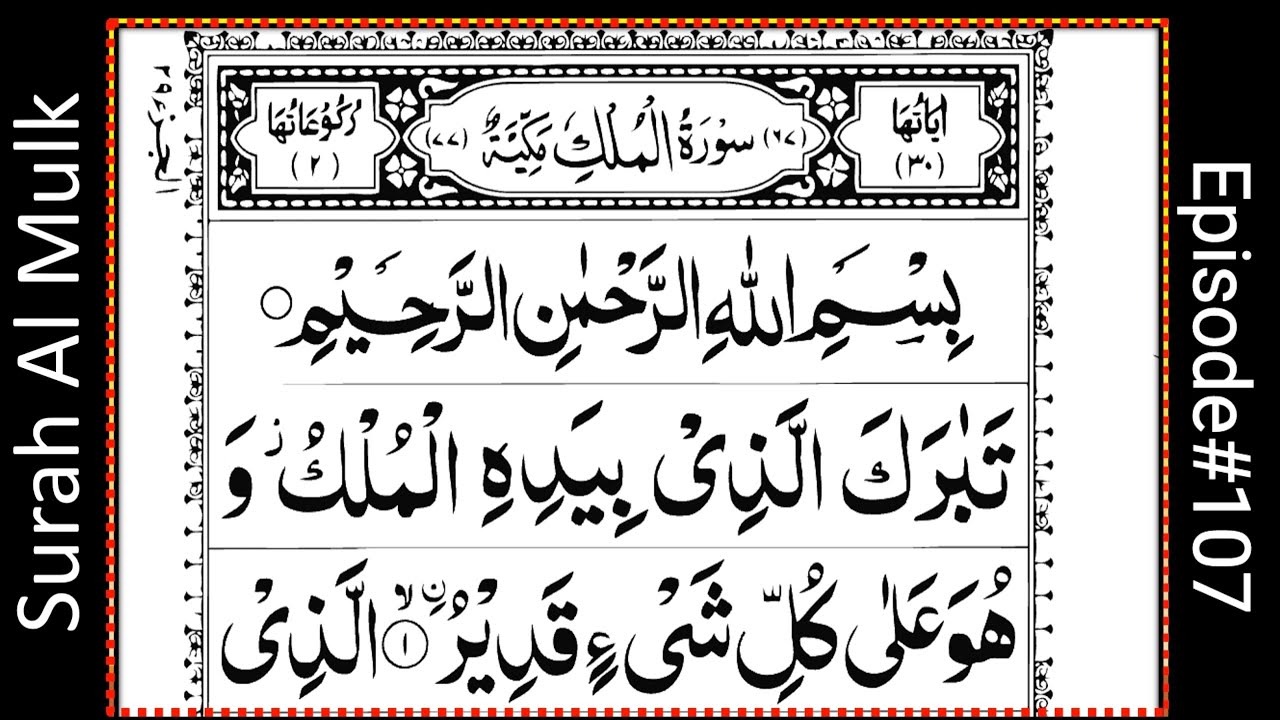 Surah Al Mulk
الجزء ٢٩
اٰيَاتُهَا (٣٠)
(٦٧) سُوْرَةُ الْمُلْكِ مَكِّيَّةٌ (٧٧)
رُكُوْعَاتُهَا (٢)
بِسْمِ اللّٰهِ الرَّحْمٰنِ الرَّحِيْمِ ○
تَبٰرَكَ الَّذِىْ بِيَدِهِ الْمُلْكُ ز وَ
هُوَ عَلٰى كُلِّ شَىْءٍ قَدِيْرُ ۨ ۙ ١ الَّذِىْ
Episode#107